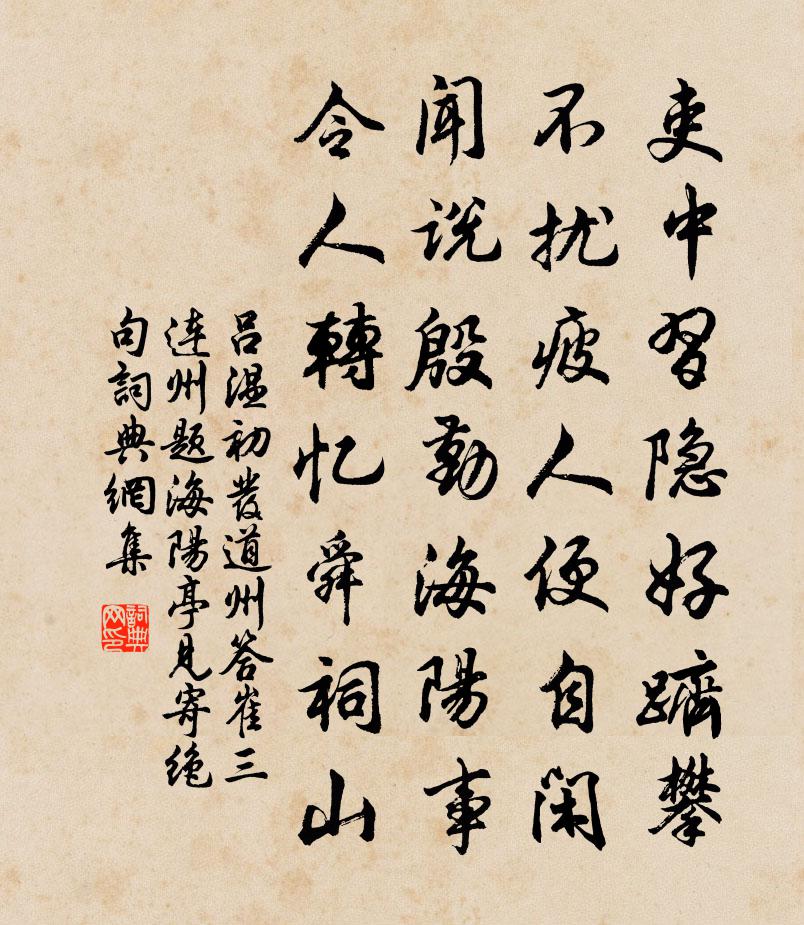 吏中习隐好躋攀
不扰疲人便自闲
闻说殷勤海陽事
令人轉忆舜祠山
吕温初發道州答崔三
连州题海陽亭见寄绝
句詞典網集
詞典
网印